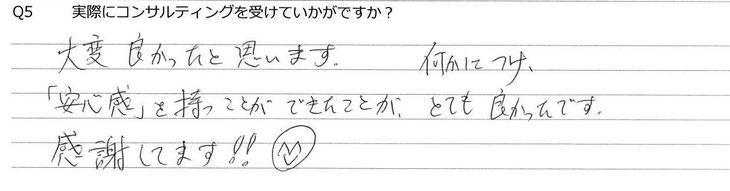 Q5 実際にコンサルティングを受けていかがですか？
大変 良かったと思います。 何かにつけ、
「安心感」を持つことができたことが、とても良かったです。
感謝してます!!